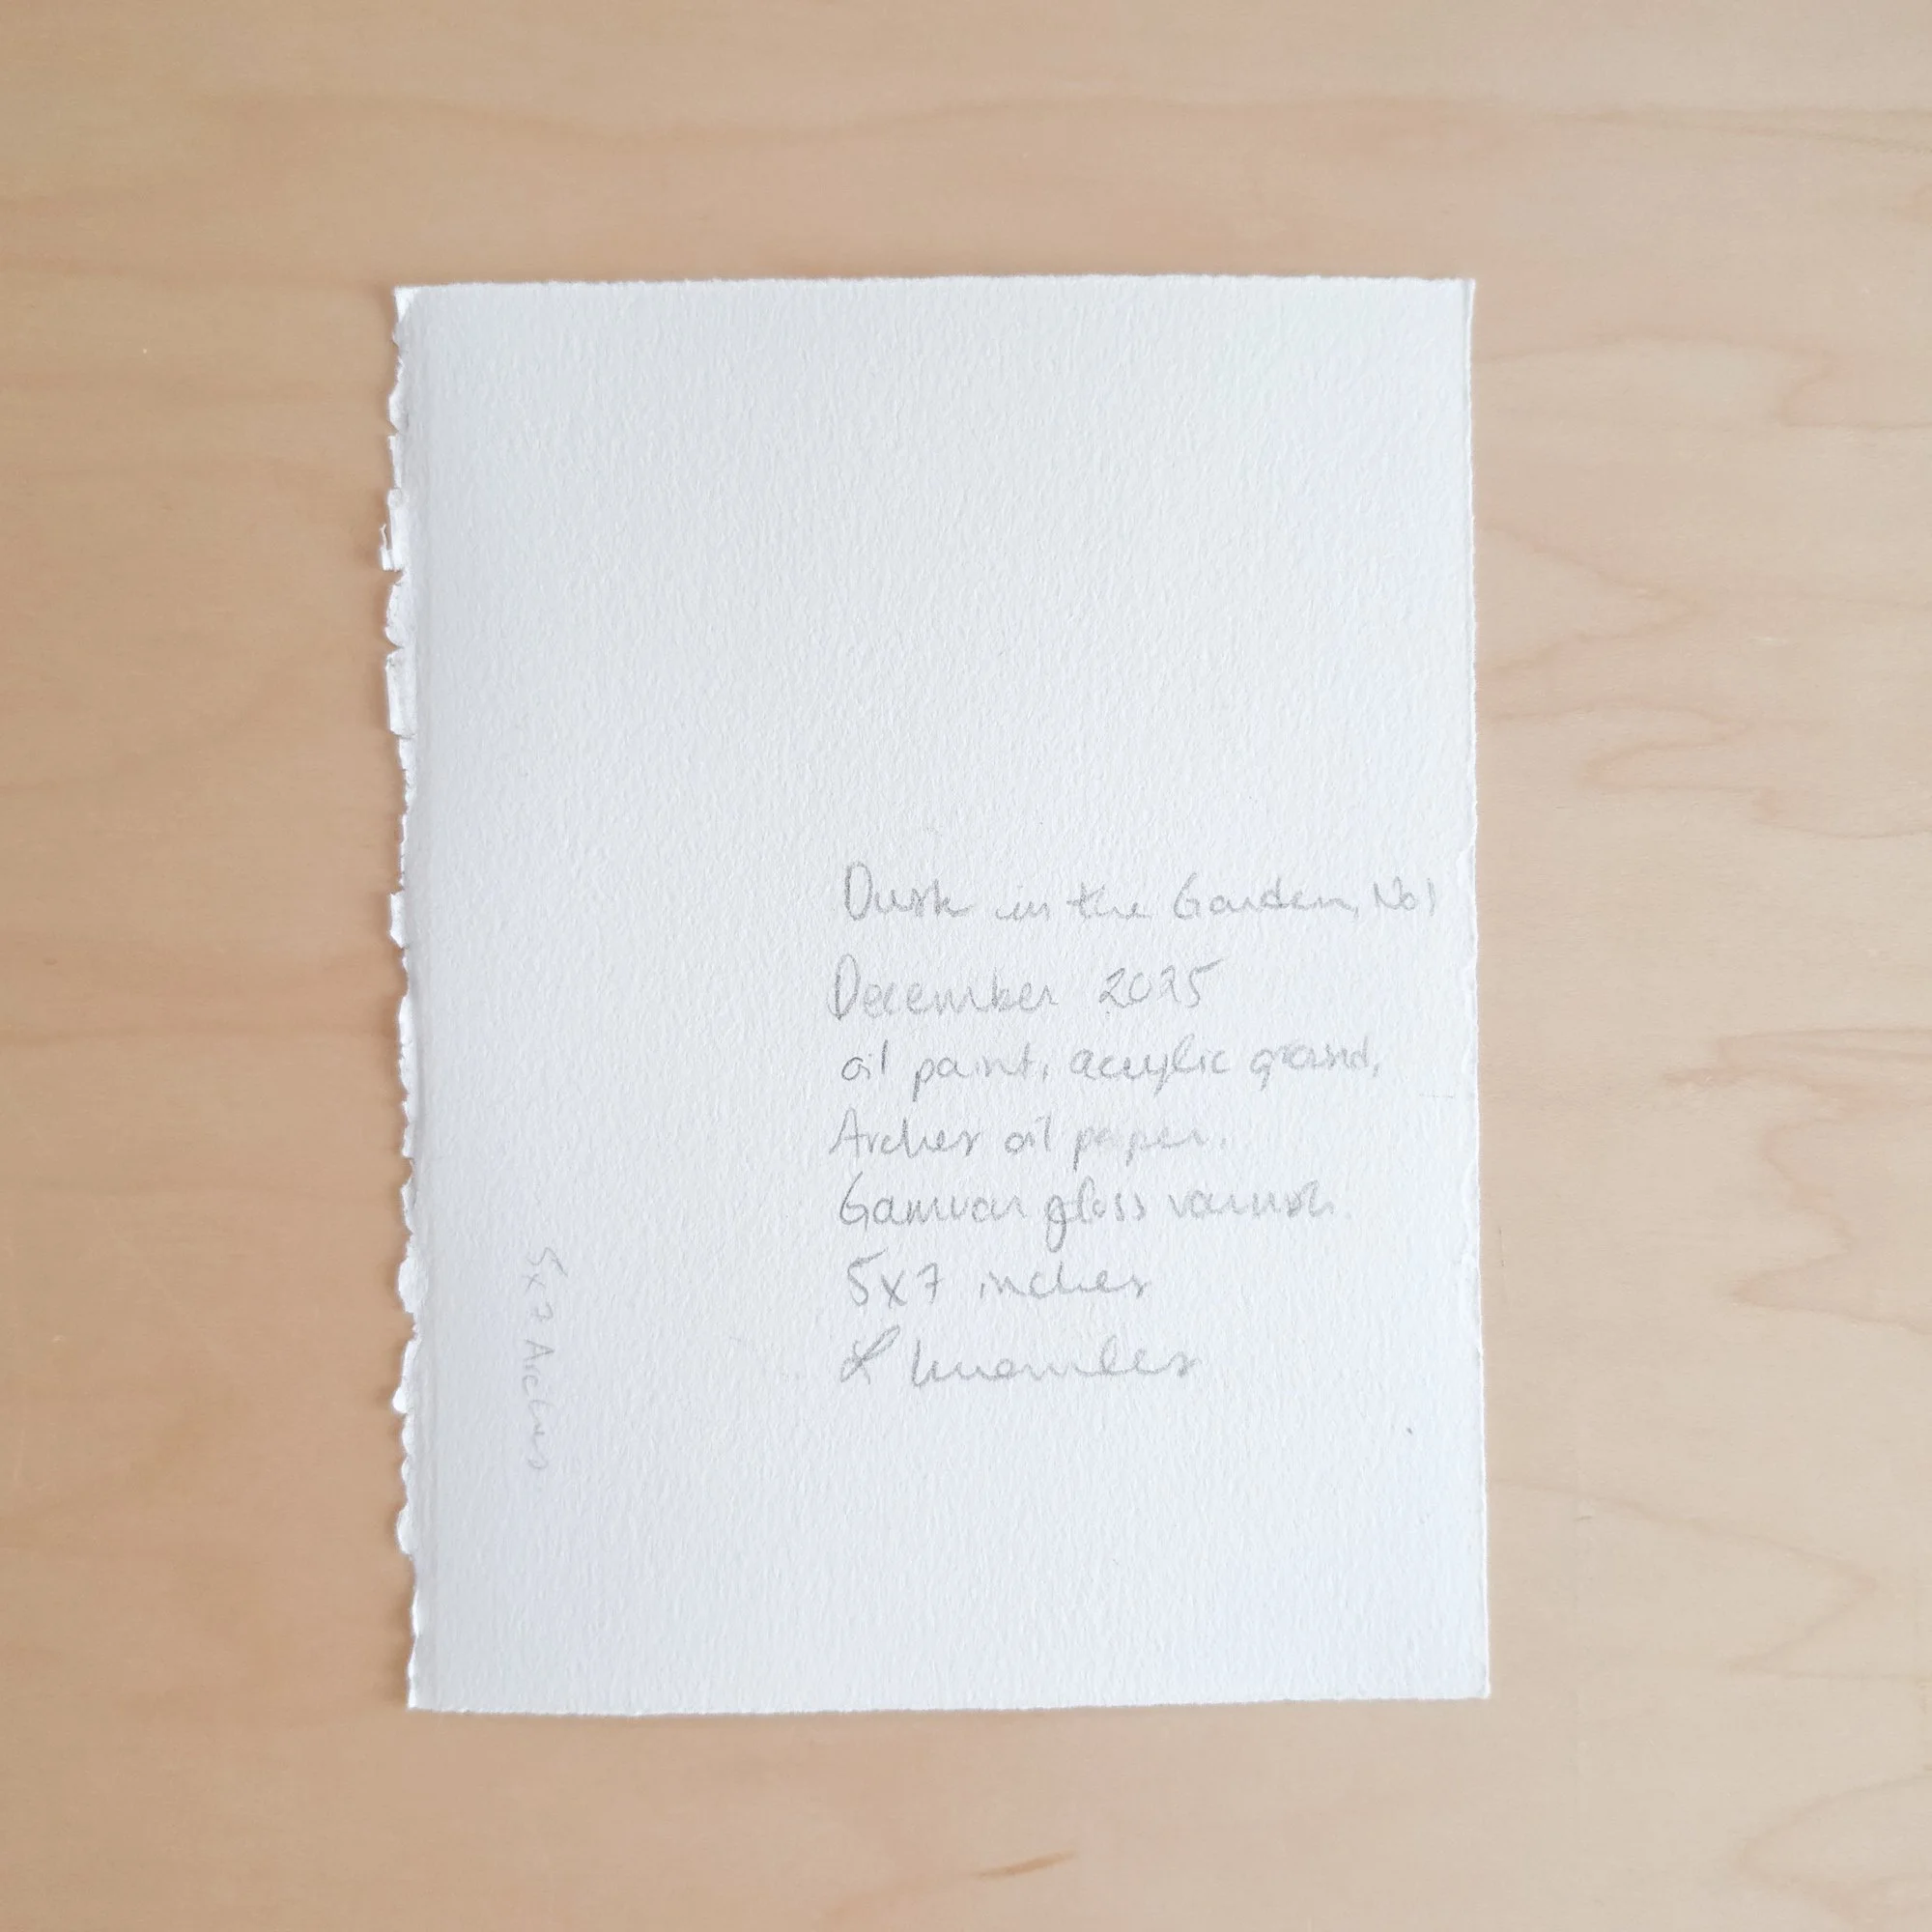 Dusk in the Garden, No1
December 2025
oil paint, acrylic ground,
Arches oil paper.
Gamvar gloss varnish.
5x7 inches
5x7 Arches